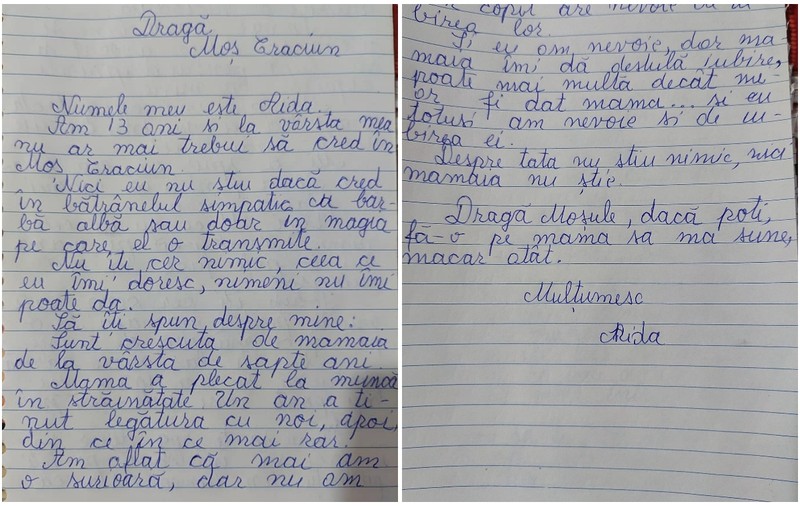 Dragă
Moș Crăciun
Numele meu este Aida.
Am 13 ani și la vârsta mea
nu ar mai trebui să cred în
Moș Crăciun
Nici eu nu știu dacă cred
în bătrânelul simpatic cu bar-
bă albă sau doar în magia
pe care el o transmite.
Nu îți cer nimic, ceea ce
eu îmi doresc, nimeni nu îmi
poate da.
Să îți spun despre mine:
Sunt crescută de mamaia
de la vârsta de șapte ani.
Mama a plecat la muncă
în străinătate. Un an a ți-
nut legătura cu noi, apoi,
din ce în ce mai rar.
Am aflat că mai am
o surioară, dar nu am
copil are nevoie
birea lor.
Și eu am nevoie, dar ma-
maia îmi dă destulă iubire,
poate mai multă decât mi-
ar fi dat mama... și eu
totuși am nevoie și de iu-
birea ei.
Despre tata nu știu nimic, nici
mamaia nu știe.
Dragă Moșule, dacă poți,
fă-o pe mama sa ma sune,
macar atât.
Mulțumesc
Aida